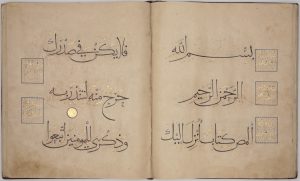 بسم الله
الرحمن الرحيم
المص كتاب أنزل إليك
فلا يكن في صدرك
حرج منه لتنذر به
وذكرى للمؤمنين اتبعوا